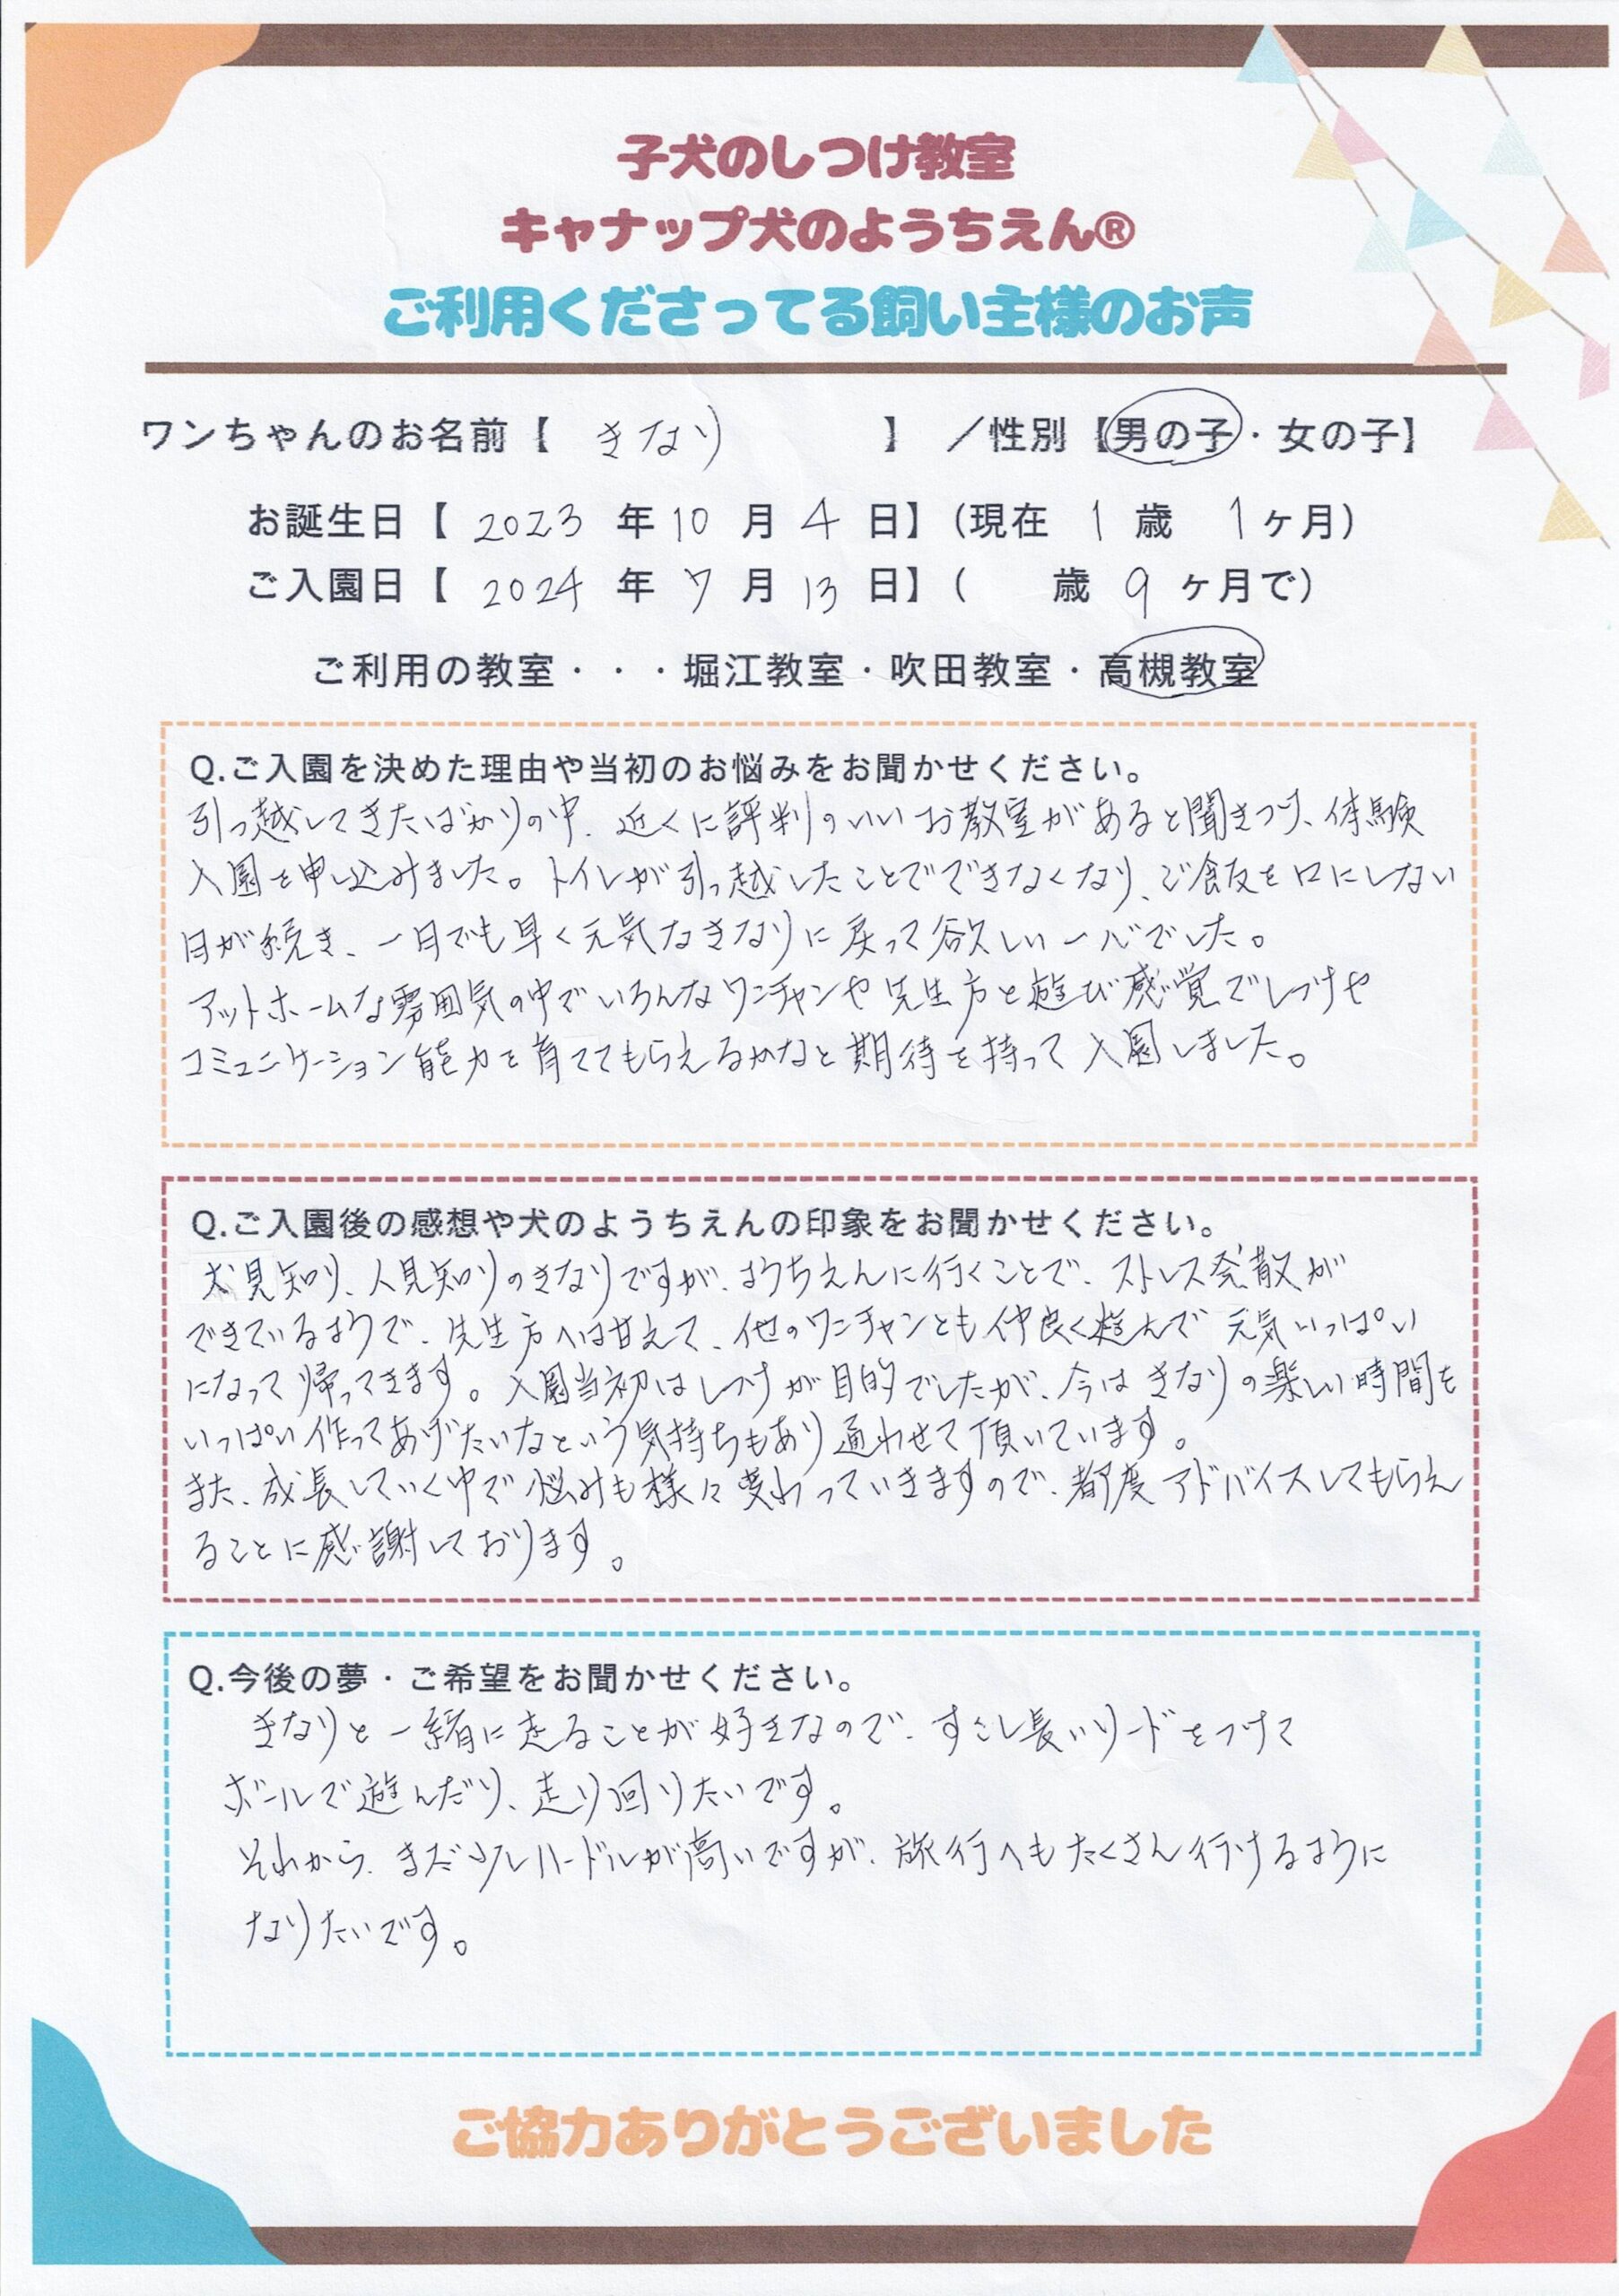 子犬のしつけ教室
キャナップ犬のようちえん®
ご利用くださってる飼い主様のお声
ワンちゃんのお名前【 きなり 】 ／性別【男の子・女の子】
お誕生日【 2023 年 10 月 4 日】(現在 1 歳 1ヶ月)
ご入園日【 2024 年 7 月 13 日】( 歳 9 ヶ月で)
ご利用の教室・・・堀江教室・吹田教室・高槻教室
Q.ご入園を決めた理由や当初のお悩みをお聞かせください。
引っ越してきたばかりの中、近くに評判のいいお教室があると聞きつけ、体験
入園を申し込みました。トイレが引っ越したことでできなくなり、ご飯を口にしない
日が続き、一日でも早く元気なきなりに戻って欲しい一心でした。
アットホームな雰囲気の中でいろんなワンチャンや先生方と遊び感覚でしつけや
コミュニケーション能力を育ててもらえるかなと期待を持って入園しました。
Q.ご入園後の感想や犬のようちえんの印象をお聞かせください。
犬見知り、人見知りのきなりですが、ようちえんに行くことで、ストレス発散が
できているようで、先生方へは甘えて、他のワンチャンとも仲良く遊んで元気いっぱい
になって帰ってきます。入園当初はしつけが目的でしたが、今はきなりの楽しい時間を
いっぱい作ってあげたいなという気持ちもあり通わせて頂いています。
また、成長していく中で悩みも様々変わっていきますので、都度アドバイスしてもらえ
ることに感謝しております。
Q.今後の夢・ご希望をお聞かせください。
きなりと一緒に走ることが好きなので、すこし長いリードをつけて
ボールで遊んだり、走り回りたいです。
それから、まだ少しハードルが高いですが、旅行へもたくさん行けるように
なりたいです。
ご協力ありがとうございました